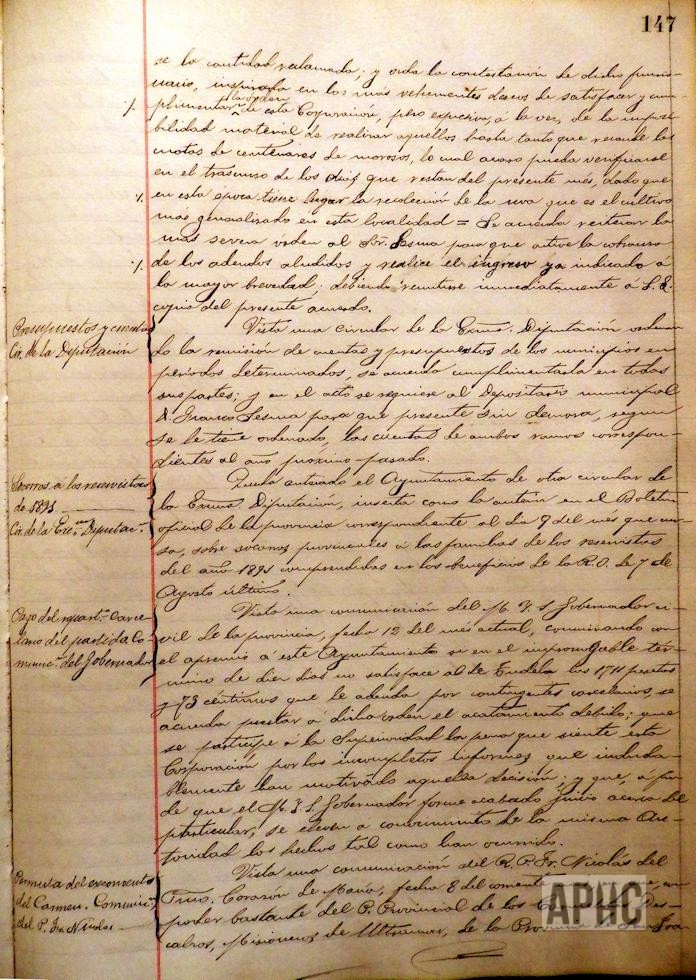 147
se la cantidad reclamada; y oida la contestación de dicho funcio-
nario, inspirada en los más vehementes deseos de satisfacer y cum-
plimentar la orden de esta Corporación, pero expresiva, á la vez, de la imposi-
bilidad material de realizar aquellos hasta tanto que recaude las
cuotas de centenares de morosos, lo cual acaso pueda verificarse
en el trascurso de los días que restan del presente mes, dado que
en esta época tiene lugar la recolección de la uva que es el cultivo
más generalizado en esta localidad = Se acuerda reiterar la
más severa orden al Sor. Lesma para que active la cobranza
de los adeudos aludidos y realice el ingreso ya indicado á
la mayor brevedad; debiendo remitirse inmediatamente á S.E.
copia del presente acuerdo.
Presupuestos y cuentas
Cir. de la Diputación
Vista una circular de la Excma. Diputación ordenan-
do la remisión de cuentas y presupuestos de los municipios en
períodos determinados, se acuerda cumplimentarla en todas
sus partes; y en el acto se requiere al Depositario municipal
D. Franco Lesma para que presente sin demora, segun
se le tiene ordenado, las cuentas de ambos ramos correspon-
dientes al año próximo pasado.
Socorros á los reservistas
de 1891
Cir. de la Exma Diputacn
Queda enterado el Ayuntamiento de otra circular de
la Excma Diputación, inserta como la anterior en el Boletin
oficial de la provincia correspondiente al día 9 del mes que cur-
sa, sobre socorros provinciales á las familias de los reservistas
del año 1891 comprendidas en los beneficios de la R.O. de 7 de
Agosto último.
Pago del repart. Carce-
lario del partido. Co-
municn del Gobernador
Vista una comunicación del M. I. S. Gobernador ci-
vil de la provincia, fecha 12 del mes actual, conminando con
el apremio á este Ayuntamiento si en el improrrogable tér-
mino de diez días no satisface al de Tudela las 1711 pesetas
y 73 céntimos que le adeuda por contingentes carcelarios, se
acuerda prestar á dicha orden el acatamiento debido; que
se participe á la Superioridad la pena que siente esta
Corporación por los incompletos informes que induda-
blemente han motivado aquella decisión; y que, á fin
de que el M. I. S. Gobernador forme acabado juicio acerca del
particular, se eleven á conocimiento de la misma Au-
toridad los hechos tal como han ocurrido.
Permuta del exconvento
del Carmen. Comunicn
del P. Fr. Nicolás
Vista una comunicación del R. P. Fr. Nicolás del
Smo. Corazón de María, fecha 8 del corriente
poder bastante del P. Provincial de los Carmelitas Des-
calzos, Misioneros de Ultramar, de la Provincia de
APHC